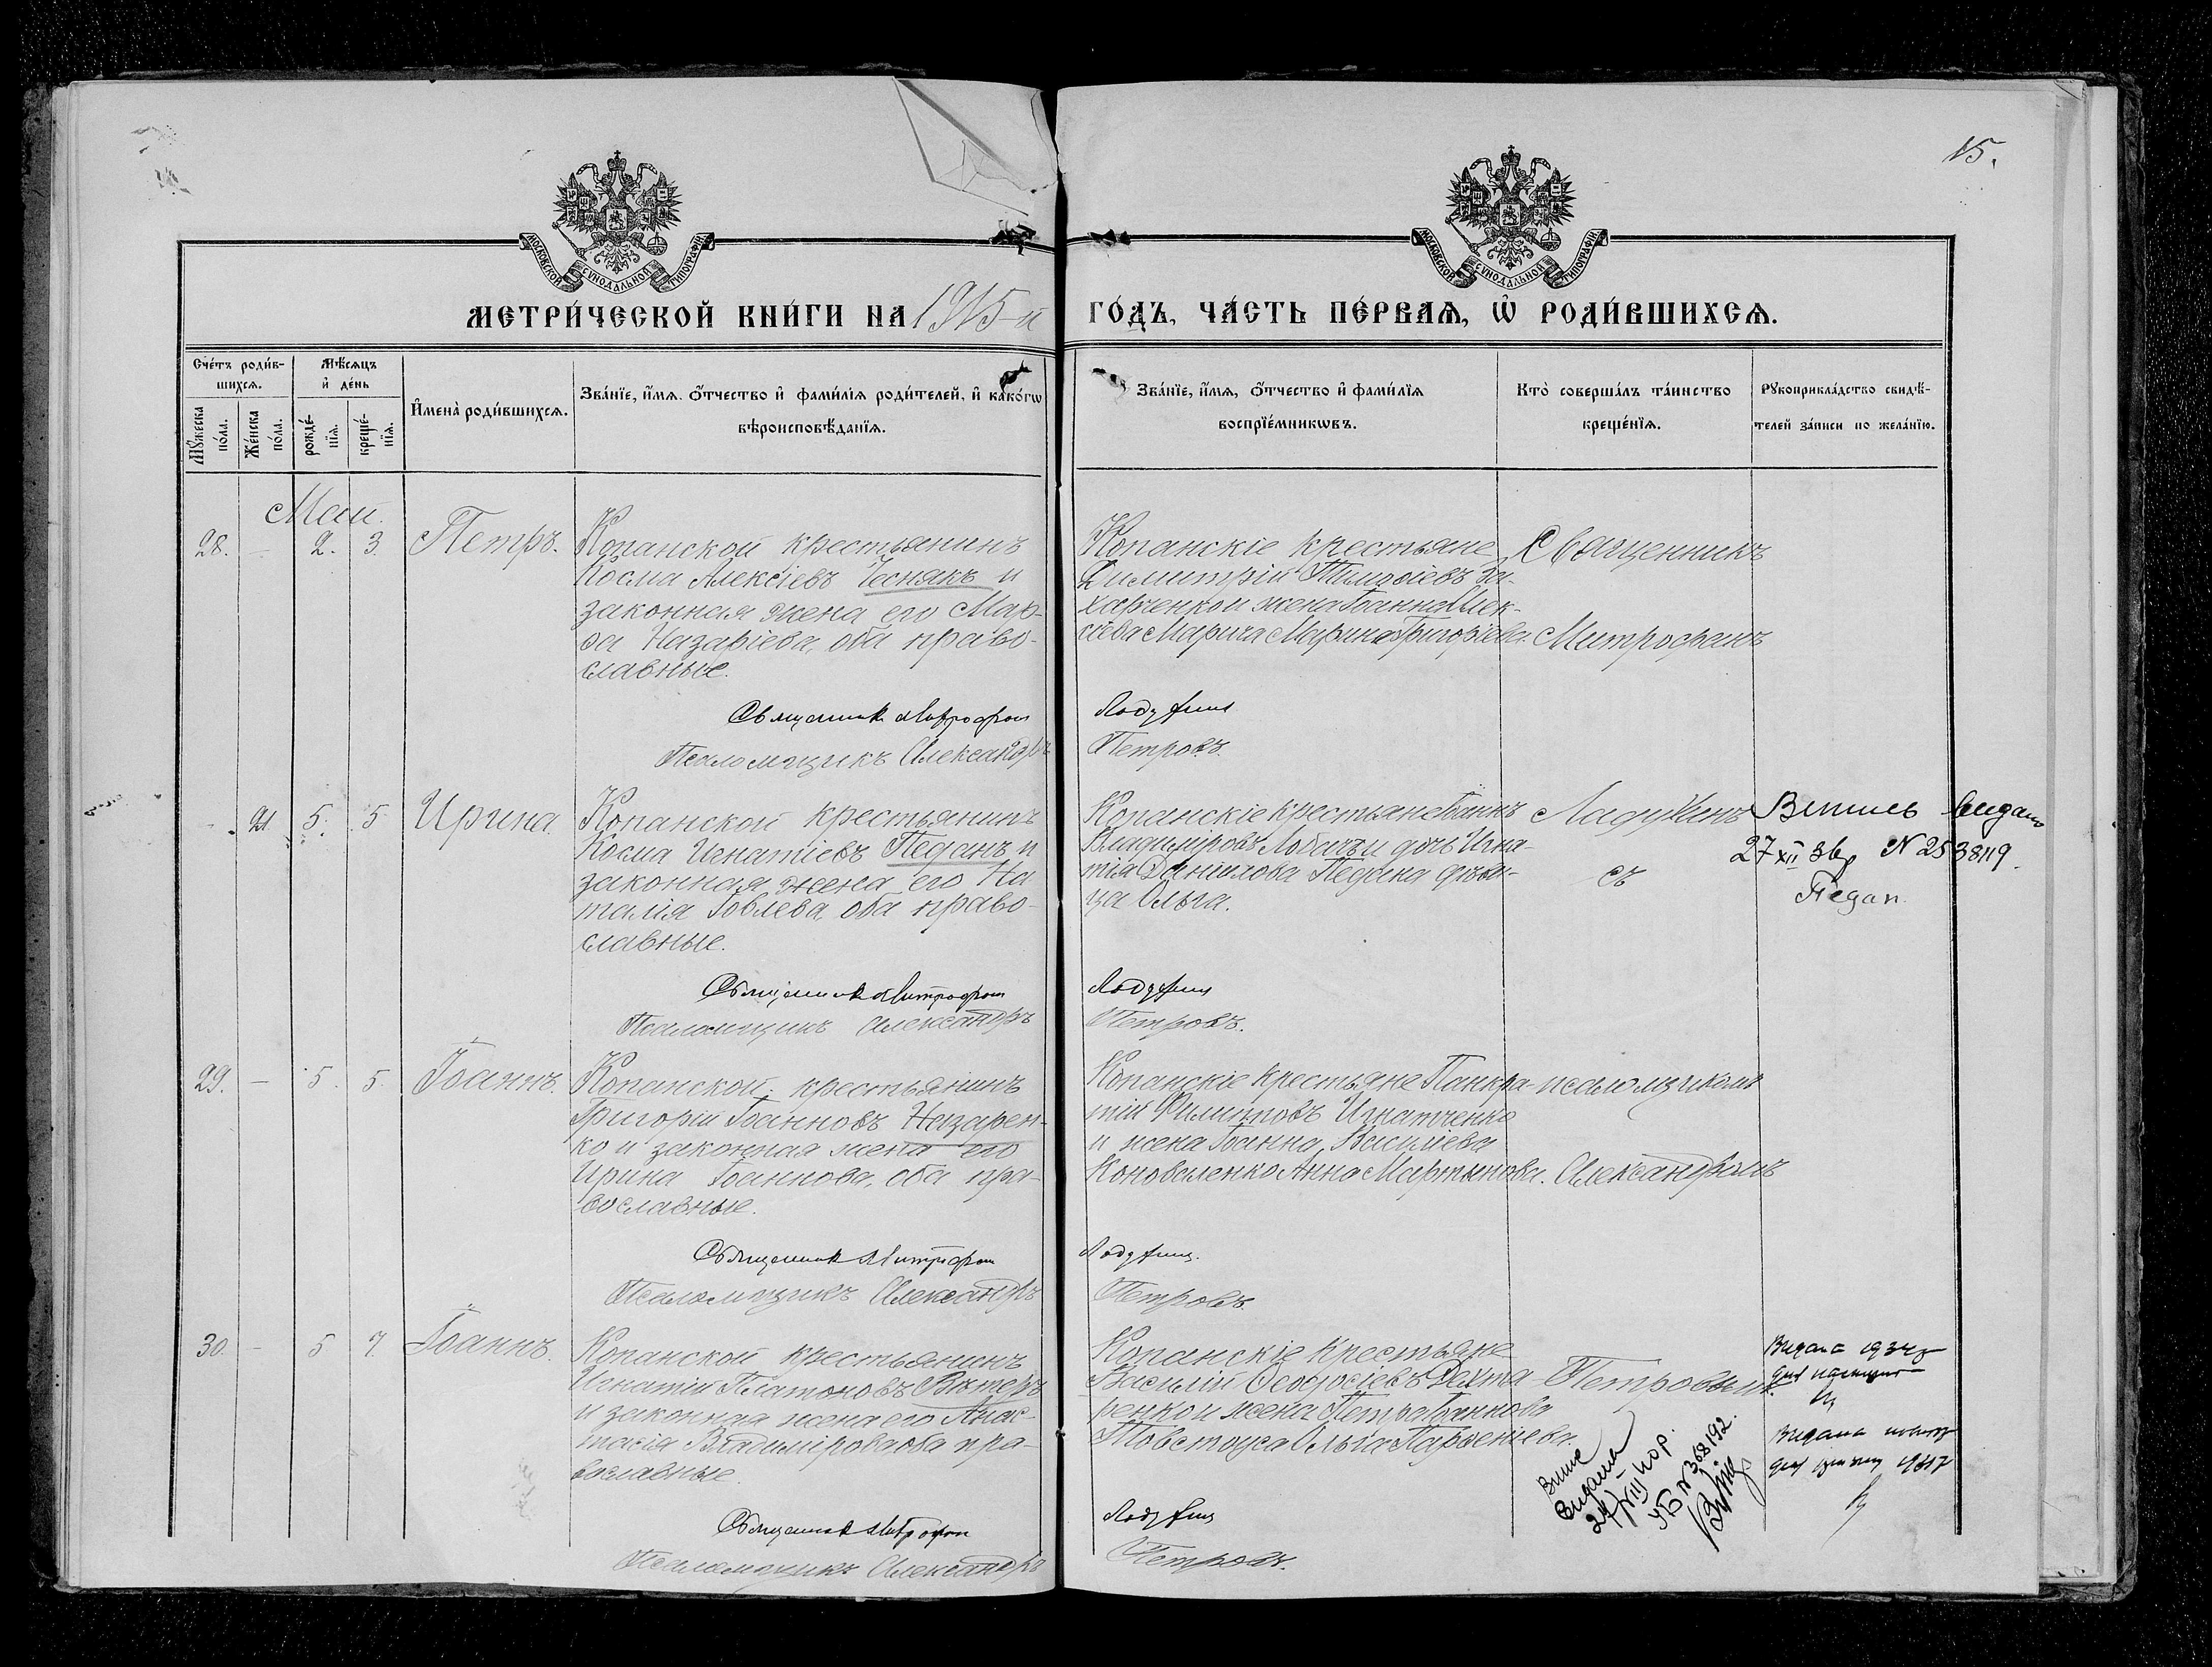 15.
МОСКОВСКОЙ СУНОДАЛЬНОЙ ТИПОГРАФІИ
МОСКОВСКОЙ СУНОДАЛЬНОЙ ТИПОГРАФІИ
МЕТРИ́ЧЕСКОЙ КНИ́ГИ НА 1915-й ГО́ДЪ, ЧА́СТЬ ПЕ́РВАѦ, Ѡ҆ РОДИ́ВШИХСѦ.
Сче́тъ роди́в-
шихсѧ.
Мꙋ́жеска
по́ла.
Же́нска
по́ла.
Мѣ́сѧцъ
и҆ де́нь
рожде́-
нїѧ.
креще́-
нїѧ.
И҆мена̀ роди́вшихсѧ.
Зва́нїе, и҆́мѧ, ѻ҆́тчество и҆ фами́лїѧ роди́телей, и҆ како́гѡ
вѣроисповѣ́данїѧ.
Зва́нїе, и҆́мѧ, ѻ҆́тчество и҆ фами́лїѧ
воспрїе́мникѡвъ.
Кто̀ соверша́лъ та́инство
креще́нїѧ.
Рꙋкоприкла́дство свидѣ́-
телей за́писи по жела́нїю.
Май.
28. - 2. 3. Петръ.
Копанской крестьянинъ
Косма Алексіевъ Чеснякъ и
законная жена его Мар-
ѳа Назаріева, оба право-
славные.
Священник Митрофан
Псаломщикъ Александръ
Копанскіе крестьяне
Димитрій Тимоѳіевъ За-
харченко и жена Іоанна Алек-
сіева Марича Марина Григоріева.
Ладухин
Петровъ.
Священникъ
Митрофанъ
- 21 5. 5 Ирина.
Копанской крестьянинъ
Косма Игнатіевъ Педанъ и
законная жена его На
талія Іовлева, оба право-
славные.
Священник Митрофан
Псаломщикъ Александръ
Копанскіе крестьяне Іоаннъ
Владиміровъ Лобачъ и дочь Игна-
тія Данилова Педана дѣви-
ца Ольга.
Ладухин
Петровъ.
Ладухинъ
съ
Випись видано
27 XII 36р N 2538119.
Педан.
29. - 5. 5. Іоаннъ.
Копанской крестьянинъ
Григорій Іоанновъ Назарен-
ко и законная жена его
Ирина Іоаннова, оба пра-
вославные.
Священник Митрофан
Псаломщикъ Александръ
Копанскіе крестьяне Панкра-
тій Филипповъ Игнатченко
и жена Іоанна Василіева
Коноваленко Анна Мартынова.
Ладухин.
Петровъ.
псаломщикомъ
Александромъ
30. - 5 7. Іоаннъ.
Копанской крестьянинъ
Игнатій Платоновъ Вѣтеръ
и законная жена его Анас-
тасія Владимірова оба пра-
вославные.
Священник Митрофан
Псаломщикъ Александръ
Копанскіе крестьяне
Василій Ѳеодосіевъ Дехта-
ренко и жена Петра Іоаннова
Товстоуса Ольга Парѳеніева.
Ладухин
Петровъ.
Петровымъ.
Видана
N 368192.
Видана
Видана